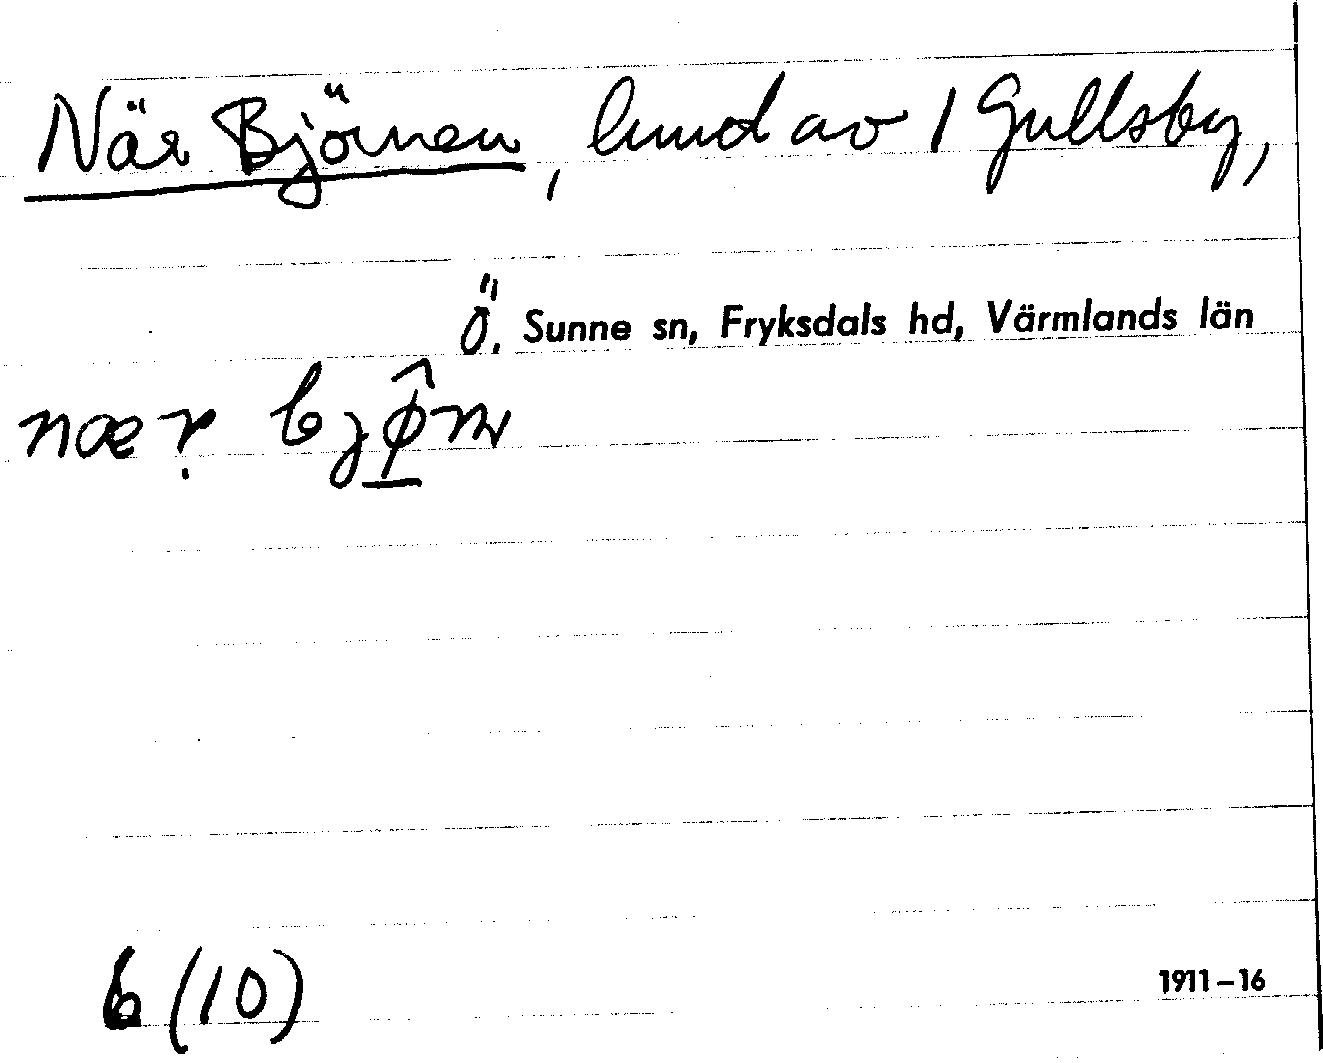 När Björnen, lund av 1 Gullsby,
Ö. Sunne sn, Fryksdals hd, Värmlands län
næṛ bjø̂ṉ
6 (10)
1911–16